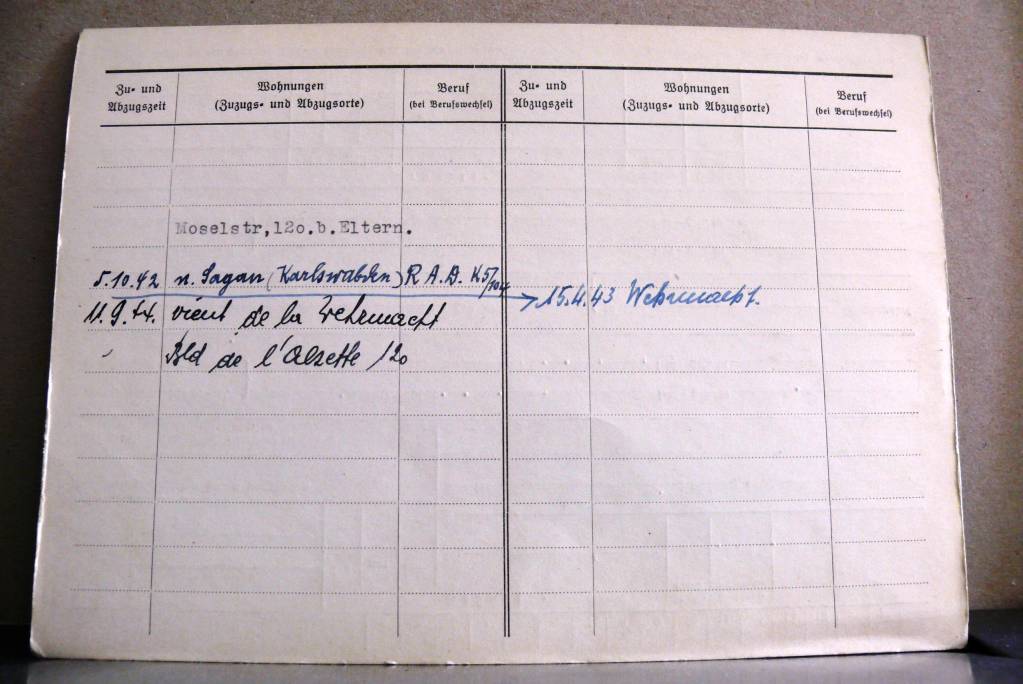 Zu- und Abzugszeit
Wohnungen
(Zuzugs- und Abzugsorte)
Beruf
(bei Berufswechsel)
Zu- und Abzugszeit
Wohnungen
(Zuzugs- und Abzugsorte)
Beruf
(bei Berufswechsel)
Moselstr,12o.b.Eltern.
5.10.42 n. Sagan (Karlswalden) R.A.D. K5/
15.4.43 Wehrmacht.
11.9.44. vient de la Wehrmacht
" Bld de l'Alzette 120